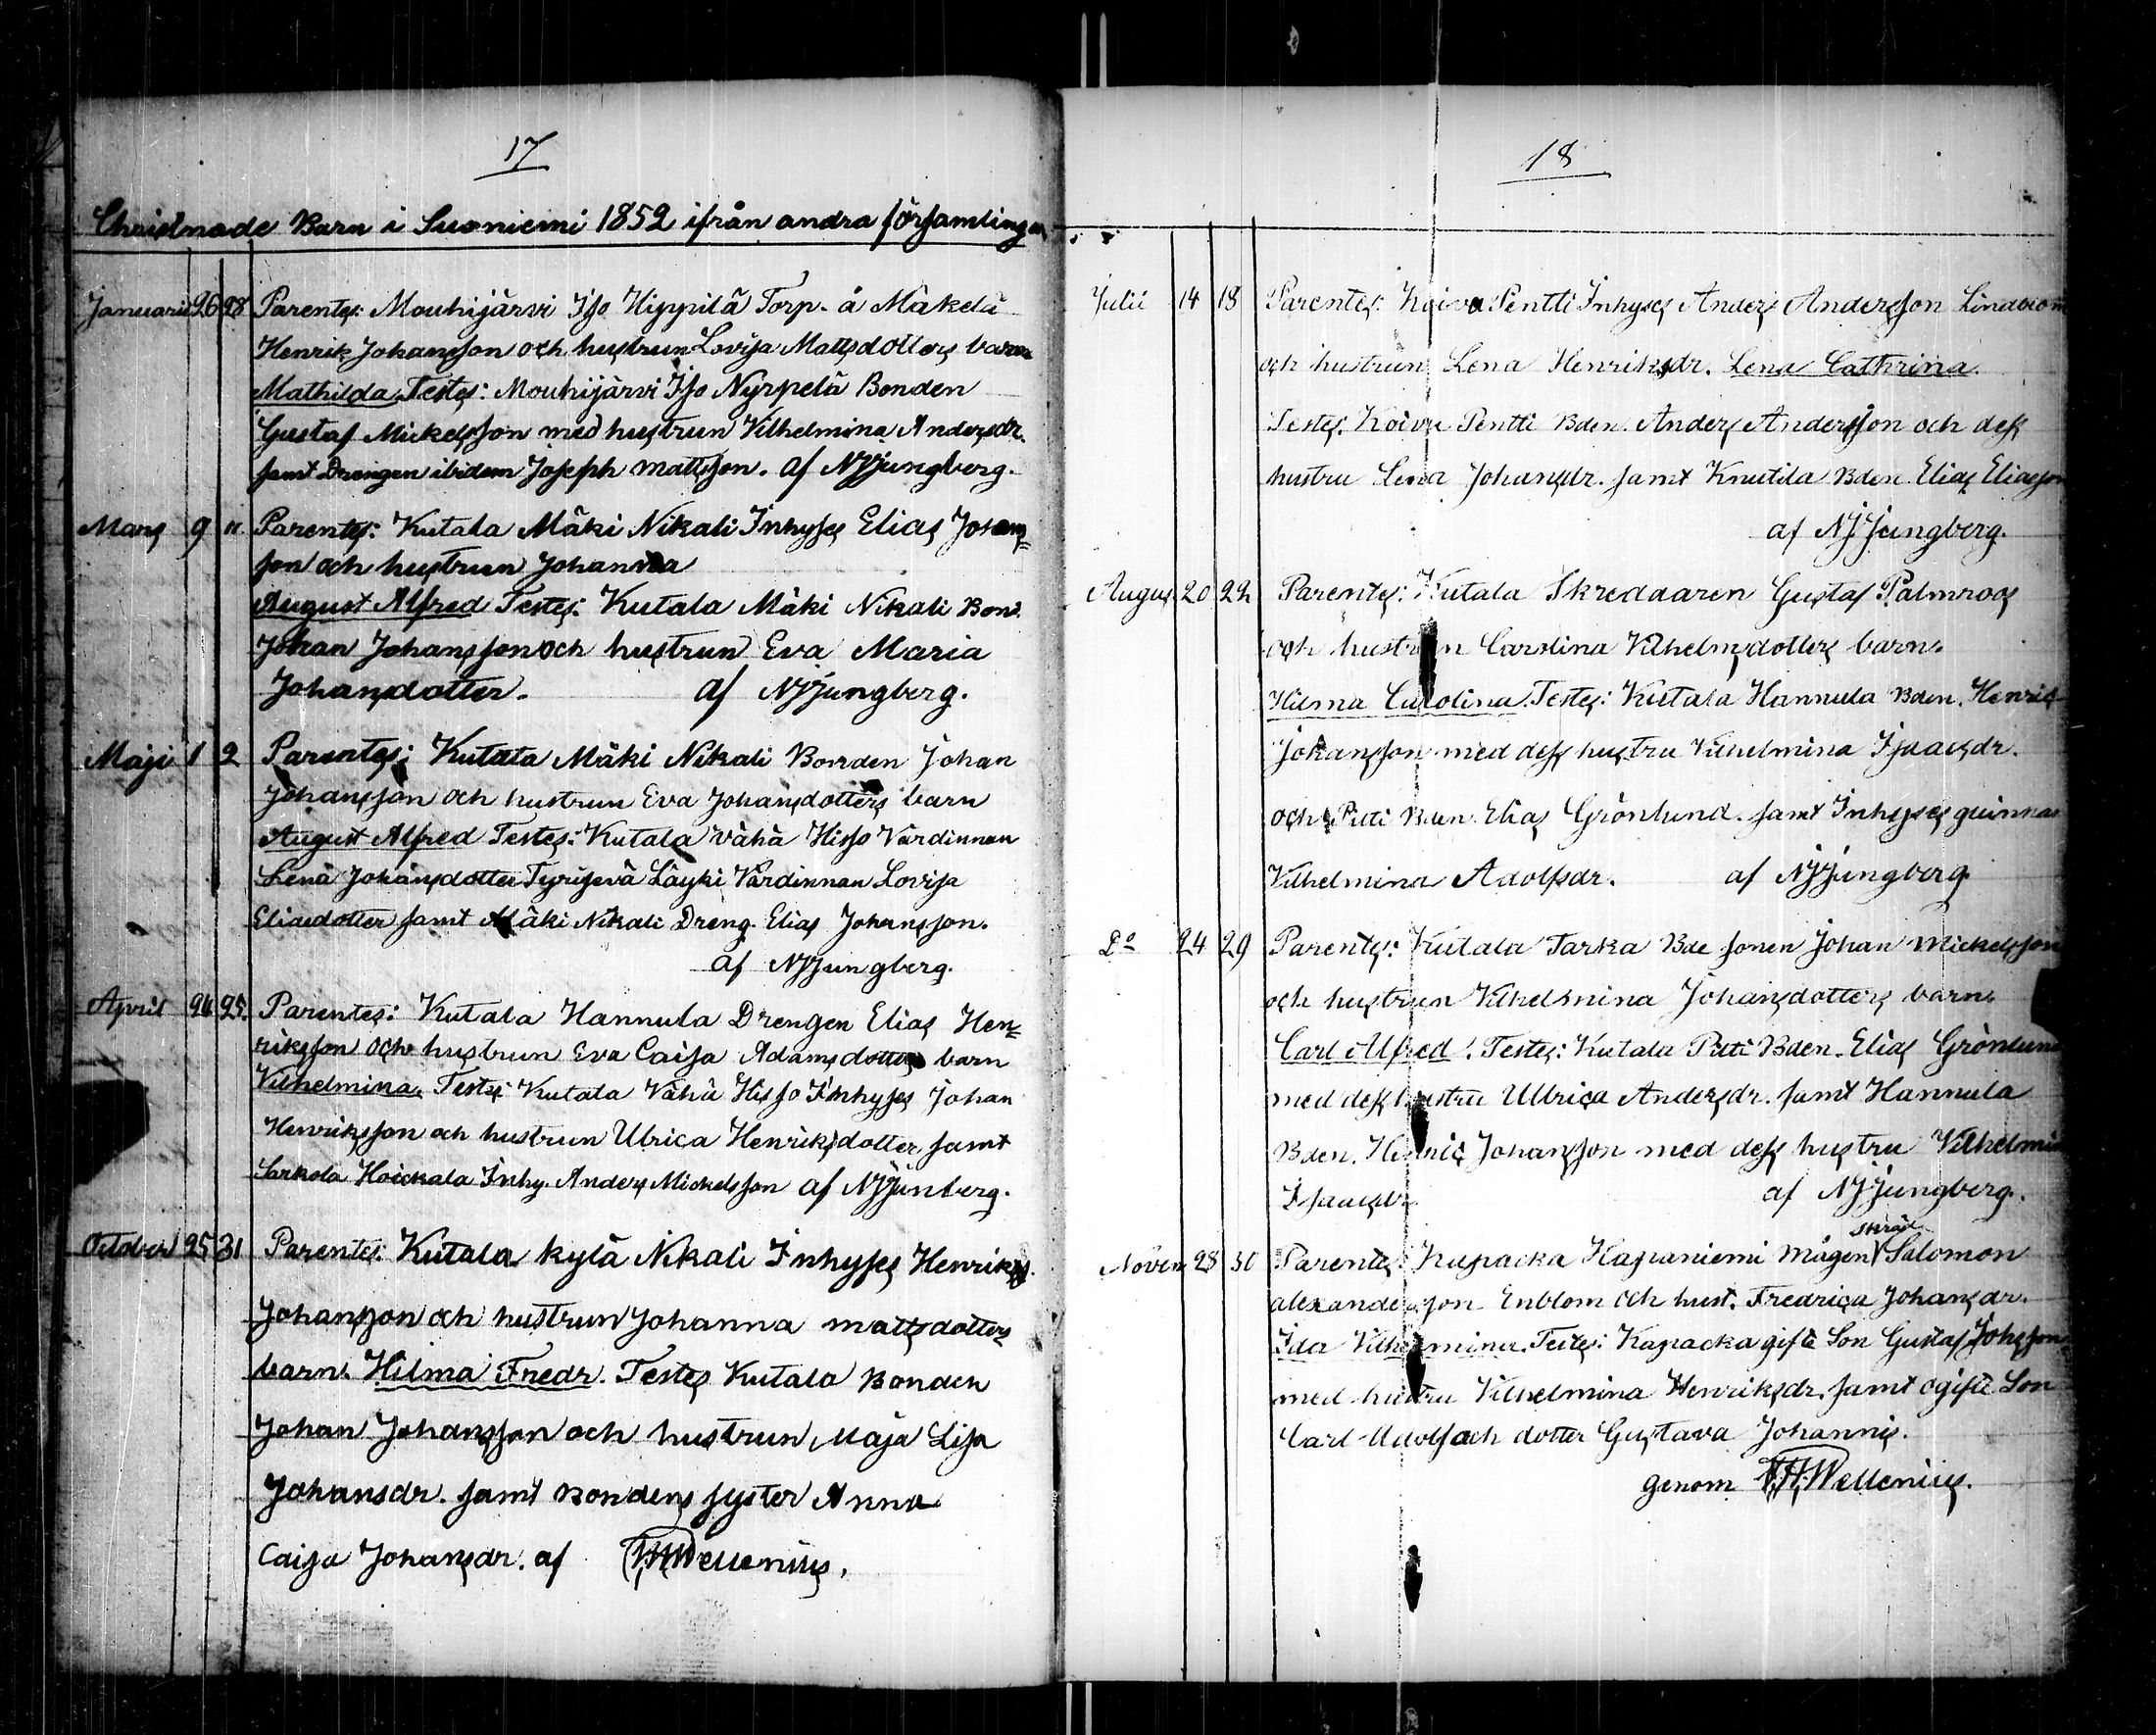 17
Christnade Barn i Suoniemi 1852 ifrån andra församlingar
Januarii 26 28 Parentes: Mouhijärvi Iso Hyppilä Torp. å Mäkelä
Henrik Johansson och hustrun Lovisa Mattsdotters barn
Mathilda Testes: Mouhijärvi Iso Nyrpelä Bonden
Gustaf Mickelsson med hustrun Vilhelmina Andersdr.
samt Drengen ibidem Joseph Mattsson. af NJjungberg.
Mars 9 11. Parentes: Kutala Mäki Nikali Inhyses Elias Johans=
son och hustrun Johanna
August Alfred Testes: Kutala Mäki Nikali Bond.
Johan Johansson och hustrun Eva Maria
Johansdotter. af NJjungberg.
Maji 1 2 Parentes: Kutala Mäki Nikali Bonden Johan
Johansson och hustrun Eva Johansdotters barn
August Alfred Testes: Kutala Vähä Hisso Värdinnan
Lena Johansdotter Tyrisevä Läyki Värdinnan Lovisa
Eliaedotter samt Mäki Nikali Dreng. Elias Johansson.
af NJjungberg.
April 24 25. Parentes: Kutala Hannula Drengen Elias Hen=
riksson och hustrun Eva Caisa Adamsdotters barn
Vilhelmina. Testes Kutala Vähä Hisso Inhyses Johan
Henriksson och hustrun Ulrica Henriksdotter samt
Sarkola Hoickala Inhy. Anders Mickelsson af NJjunberg.
October 25 31 Parentes: Kutala kylä Nikali Inhyses Henriks
Johansson och hustrun Johanna mattsdotters
barn. Hilma Fredr. Testes Kutala Bonden
Johan Johansson och hustrun Maja Lisa
Johansdr. samt Bondens syster Anna
Caisa Johansdr. af Wellenius.
18
Julii 14 18 Parentes: Koivu Pentti Inhyses Anders Andersson Lindroo
och hustrun Lena Henriksdr. Lena Cathrina.
Testes. Koivu Pentti Bden. Anders Andersson och dess
hustru Lena Johansdr. samt Knutila Bden. Elias Eliasson
af NJjungberg.
Augus 20 22 Parentes: Kutala Skreddaren Gustaf Palmroos
och hustrun Carolina Vilhelmsdotters barn.
Hilma Carolina. Testes: Kutala Hannula Bden. Henric
Johansson med dess hustru Vilhelmina Isaacsdr.
och Piiti Bden. Elias Grönlund. samt Inhyses quinnan
Vilhelmina Adolfsdr. af NJjungberg
Do 24 29 Parentes: Kutala Tarka Bde sonen Johan Mickelsson
och hustrun Vilhelmina Johansdotters barn
Carl Alfred. Testes: Kutala Piiti Bden. Elias Grönlund
med dess hustru Ullrica Andersdr. samt Hannula
Bden. Henric Johansson med dess hustru Vilhelmi
Isaacsdr. af NJjungberg.
skräd.
Novem 28 30 Parentes: Kupacka Hapaniemi Mågen Salomon
alexandersson Enblom och hust. Fredrica Johansdr.
Ida Vilhelmina. Testes: Kapacka gifte Son Gustaf Johsson
med hustru Vilhelmina Henriksdr. samt ogifte Son
Carl Adolf och dotter Gustava Johannis.
genom Wellenius.